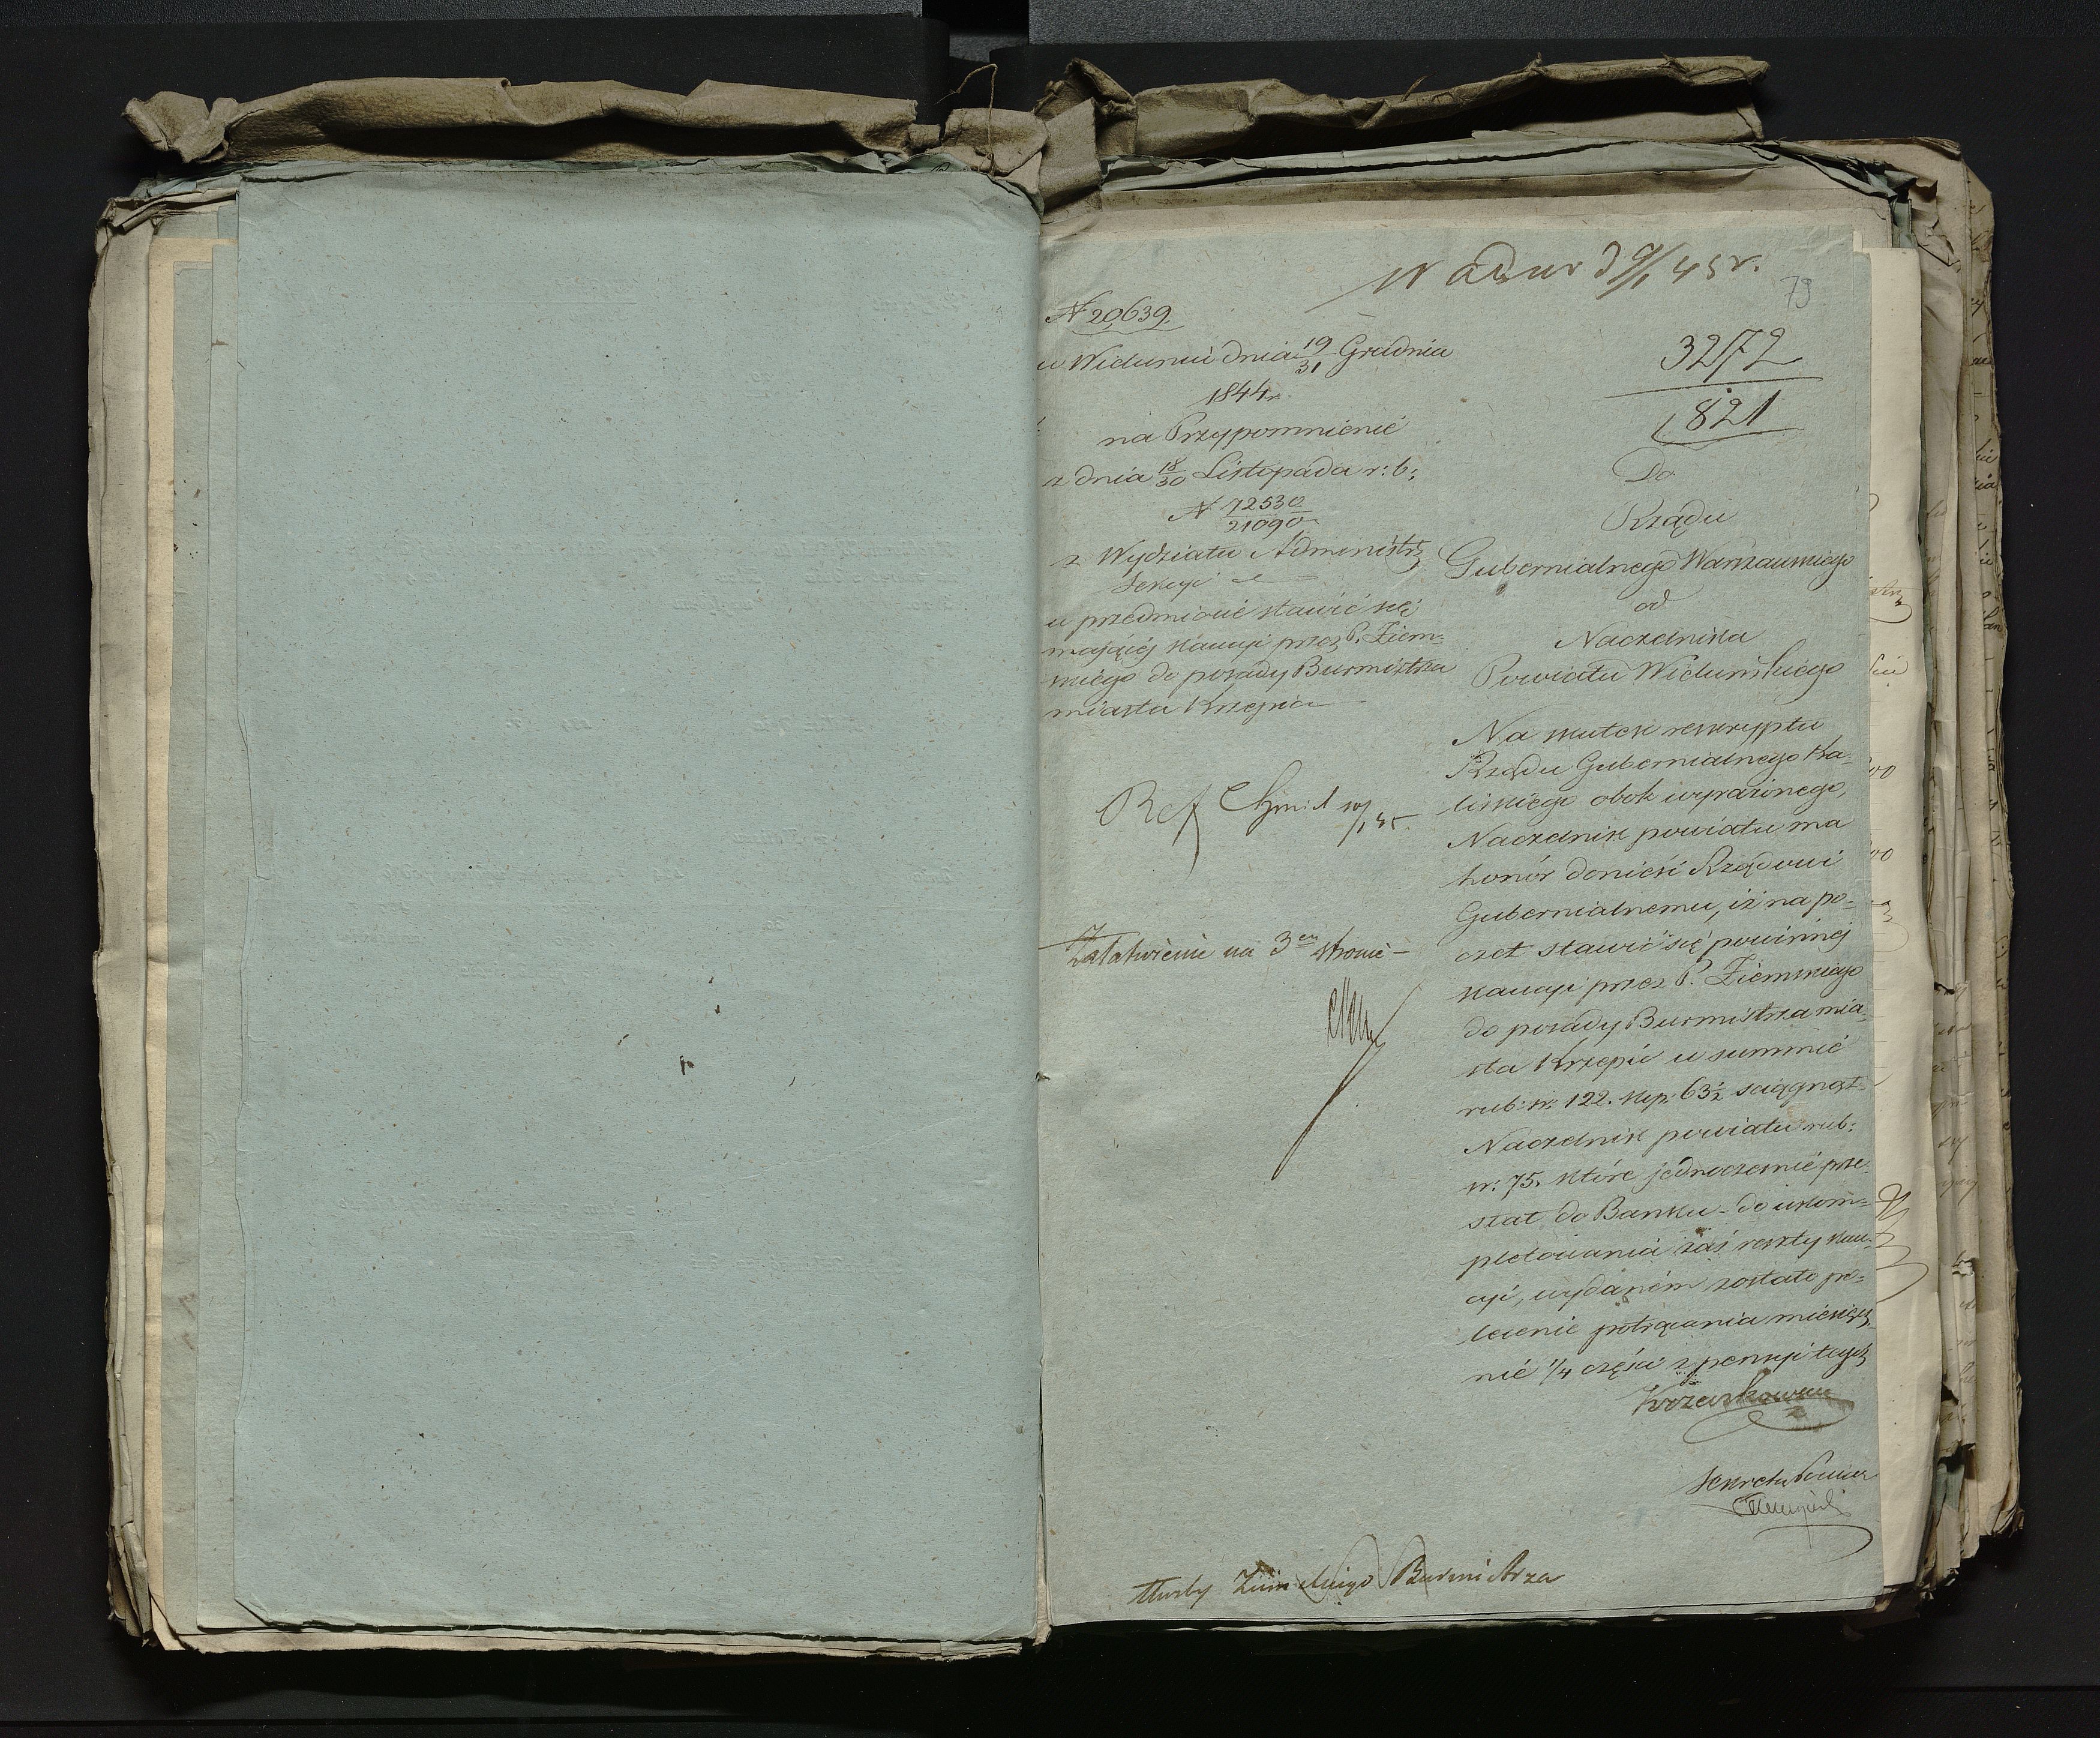 W Adm d 9/1 45 r.
79
N 20639.
w Wieluniu dnia 19/31 Grudnia
1844 r.
na Przypomnienie
z dnia 18/30 Listopada r: b:
N 72530/21090
z Wydziału Administr
Sekcyi
w przedmiocie stawić się
mającéj kaucyi przez P. Ziem=
skiego do posady Burmistrza
miasta Krzepic
Ref
Załatwienie na 3ej stronie –
3272
821
Do
Rządu
Gubernialnego Warszawskiego
od
Naczelnika
Powiatu Wieluńskiego
Na skutek reskryptu
Rządu Gubernialnego Ka=
liskiego obok wyrażonego,
Naczelnik powiatu ma
honór donieść Rządowi
Gubernialnemu, iż na po=
czet stawić się powinnéj
kaucyi przez P. Ziemskiego
do posady Burmistrza mia=
sta Krzepic w summie
rub: sr: 122. kop. 63½ ściągnął
Naczelnik powiatu rub:
sr: 75. które jednocześnie prze=
słał do Banku – do ukom=
pletowania zaś reszty kau=
cyi, wydaném zostało po=
lecenie potrącania miesięcz=
nie 1/4 części z pensyi tegoż
Sekretarz Powiatu
Ziemskiego Burmistrza